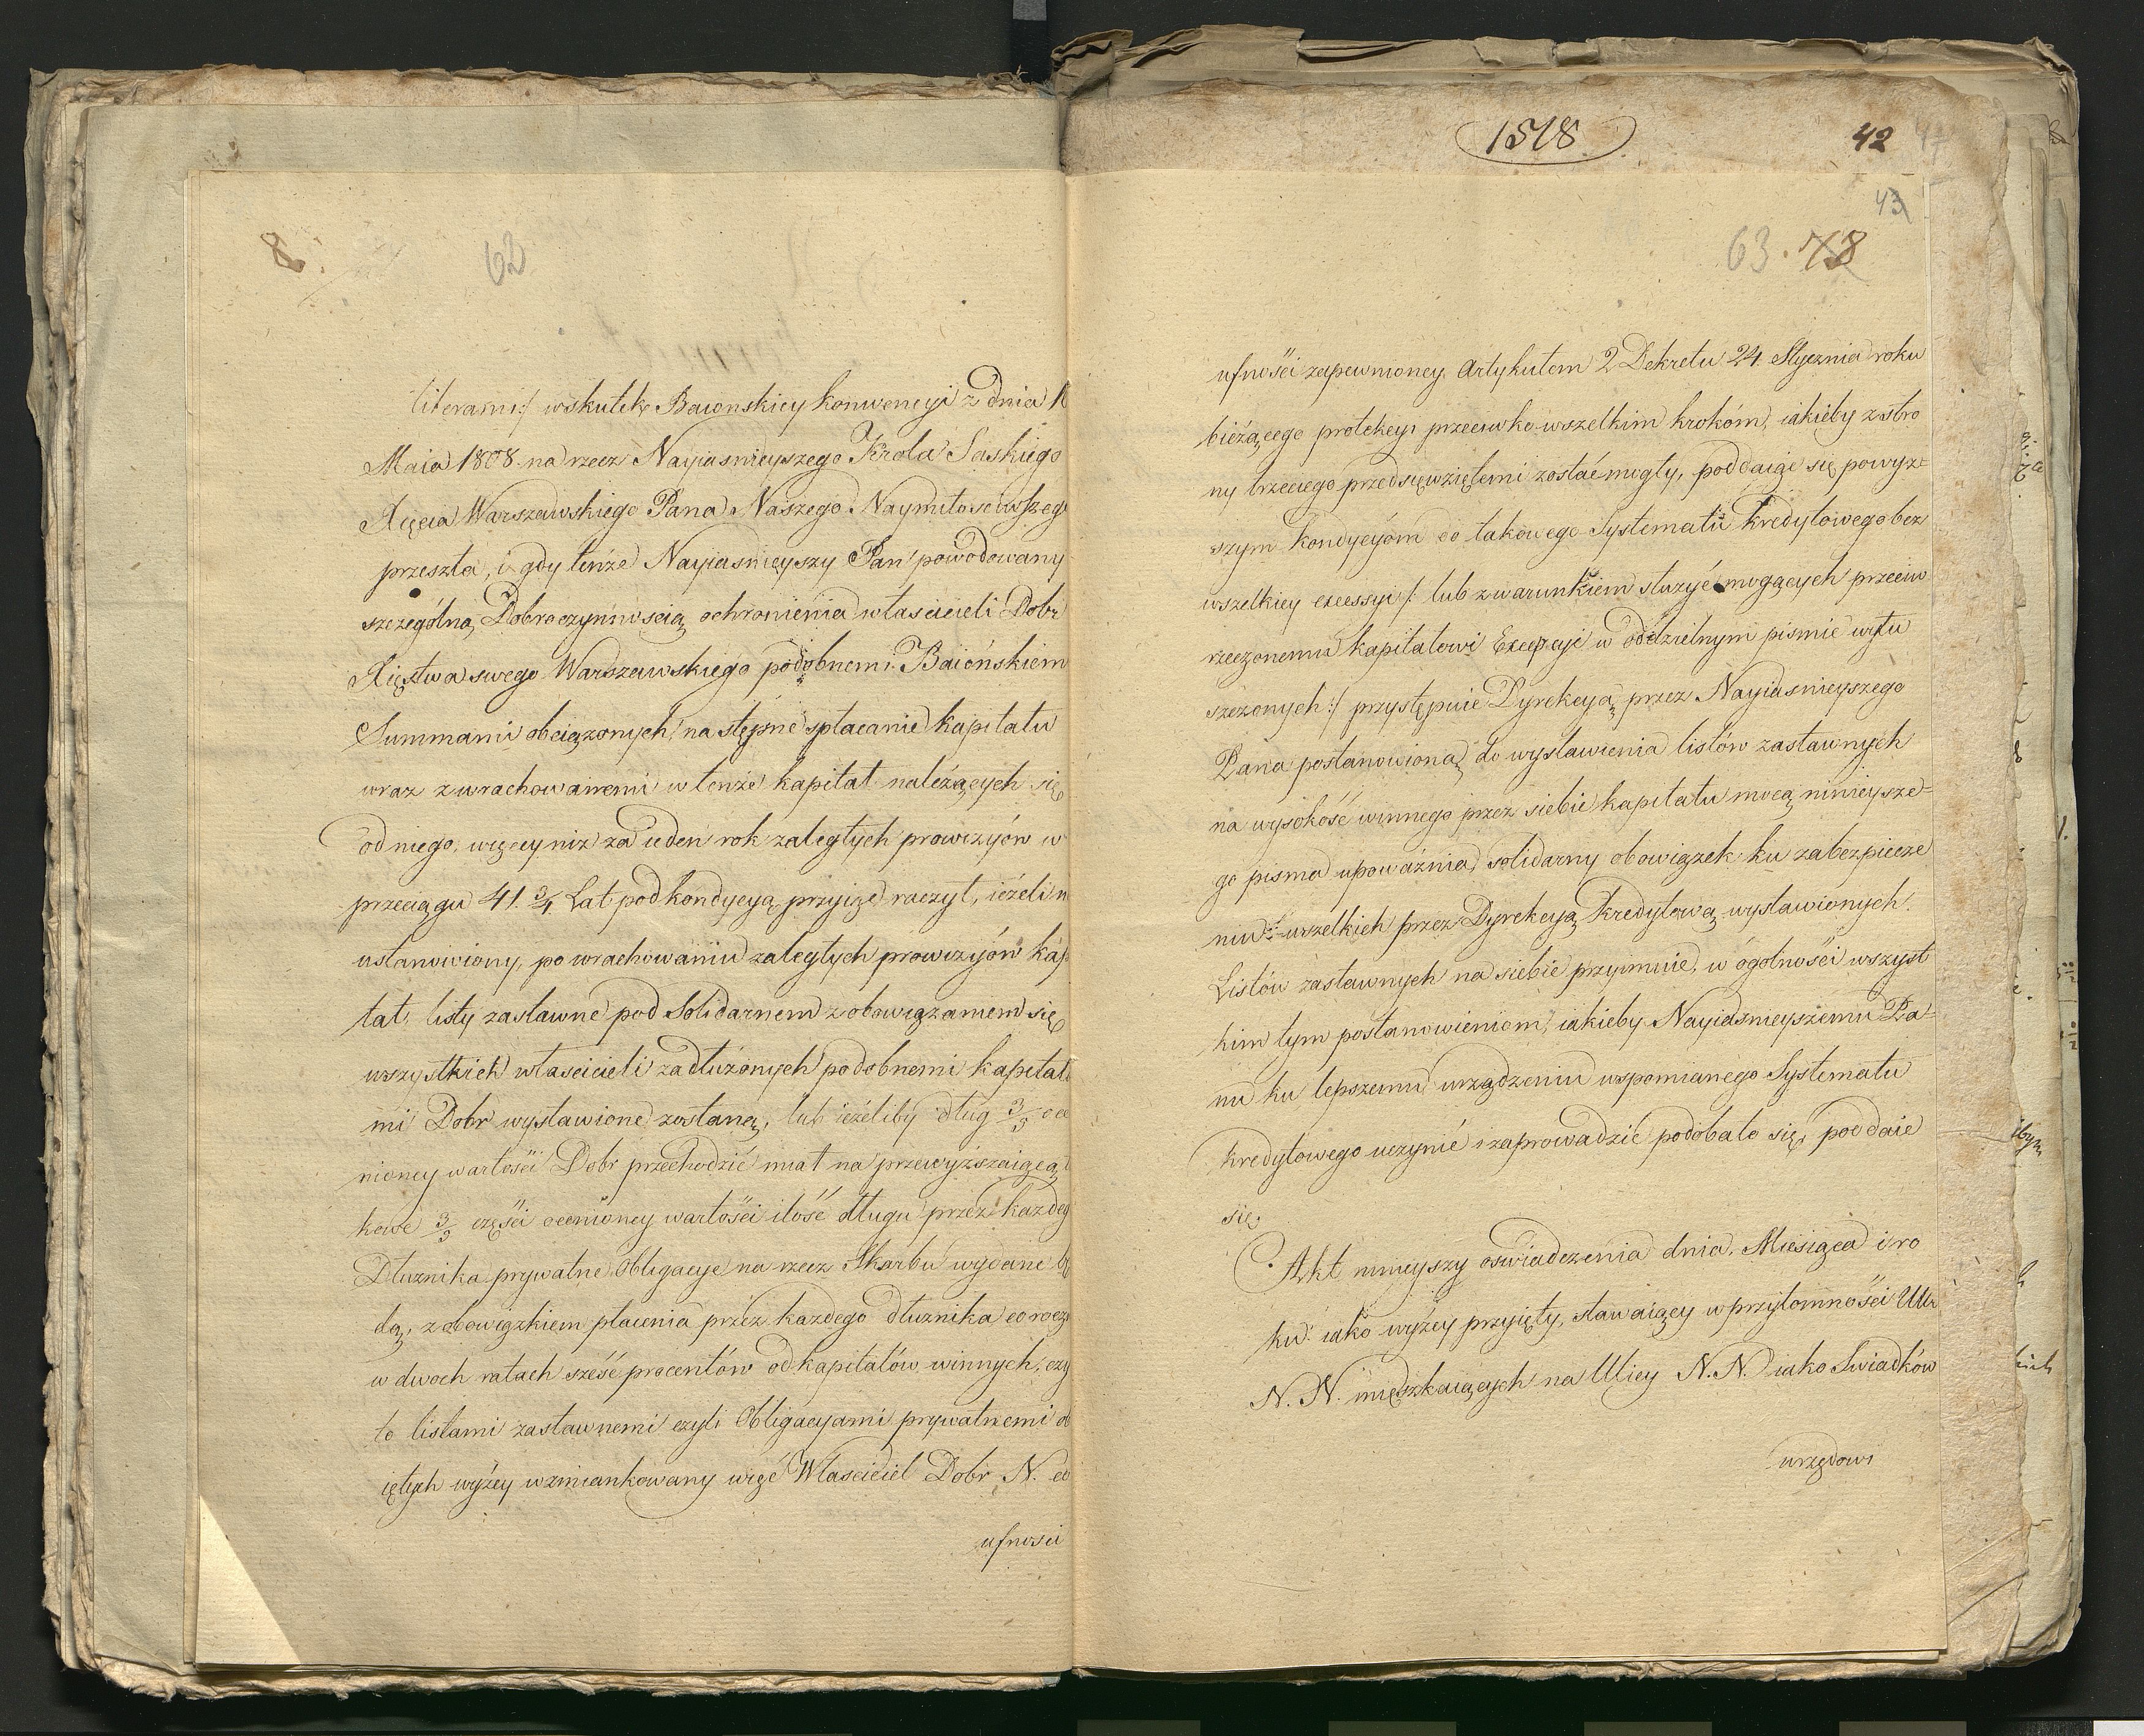 8.
62
literami:/ wskutek Baionskiey konwencyi z dnia 10
Maia 1808 na rzecz Nayiasnieyszego Krola Saskiego
Xięcia Warszawskiego Pana Naszego Naymiłosciwszego
przeszła, i gdy tenże Nayiasnieyszy Pan powodowany
szczegolną Dobroczynnością ochronienia włascicieli Dobr
Xięstwa swego Warszawskiego podobnemi Baiońskiemi
Summami obciązonych, na stępne spłacanie kapitału
wraz z wrachowanemi w tenże kapitał należących się
od niego, więcey niz za ieden rok zaległych prowizyów w
przeciągu 41. 3/4 Lat pod kondycyą przyiąć raczył, ieżeli n
ustanowiony, po wrachowaniu zaległych prowizyów kap
tał, listy zastawne pod Solidarnem zobowiązaniem się
wszystkich własicieli zadłużonych podobnemi kapitała
mi Dobr wystawione zostaną, lub ieżeliby dług 3/5 oce
nioney wartości Dobr przechodzić miał na przewyższaiącą
kowe 3/5 części ocenioney wartości ilość długu przez każdeg
Dłuznika prywatne Obligacye na rzecz Skarbu wydane bę
dą, z obowiązkiem płacenia przez kazdego dłuznika corocz
w dwoch ratach sześć procentów od kapitałów winnych, czy
to listami zastawnemi czyli Obligacyami prywatnemi ob
iętych wyżey wzmiankowany więc Własciciel Dobr N. co
ufnosci
1518
42
43
63. 78
ufności zapewnioney Artykułem 2 Dekretu 24 Stycznia roku
bieżącego protekcyi przeciwko wszelkim krokóm, iakieby z stro
ny trzeciego przedsięwziętemi zostać mogły, poddaiąc się powyz=
szym kondycyóm co takowego Systematu kredytowego bez
wszelkiey excessyi /: lub z warunkiem słuzyć mogących przeciw
rzeczonemu kapitałowi Excepcyi w oddzielnym pismie wyłu
szczonych :/ przystępuie Dyrekcyą przez Nayiasnieyszego
Pana postanowioną do wystawienia listów zastawnych
na wysokość winnego przez siebie kapitału mocą ninieysze=
go pisma upoważnia, solidarny obowiązek ku zabezpiecze
niu wszelkich przez Dyrekcyą kredytową wystawionych
Listów zastawnych na siebie przyimuie, w ogolności wszyst
kim tym postanowieniom, iakieby Nayiasnieyszemu Pa=
nu ku lepszemu urządzeniu wspomianego Systematu
kredytowego uczynić i zaprowadzić podobało się, poddaie
się.
Akt ninieyszy oswiadczenia dnia, Miesiąca i ro
ku iako wyżey przyięty, stawaiący w przytomności UUr
N. N. mieszkaiących na Ulicy N. N. iako Swiadków
urzędowi